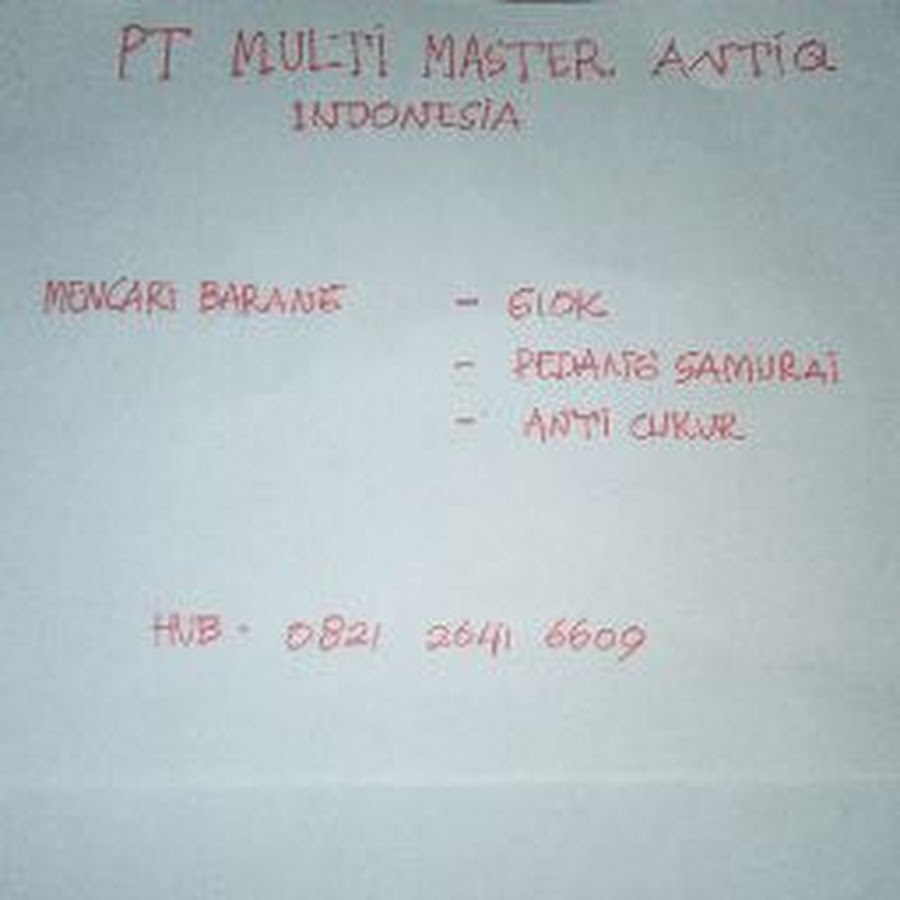 PT MULTI MASTER. ANTIQ
INDONESIA
MENCARI BARANG - GIOK
- PEDANG SAMURAI
- ANTI CUKUR
HUB - 0821 2641 6609